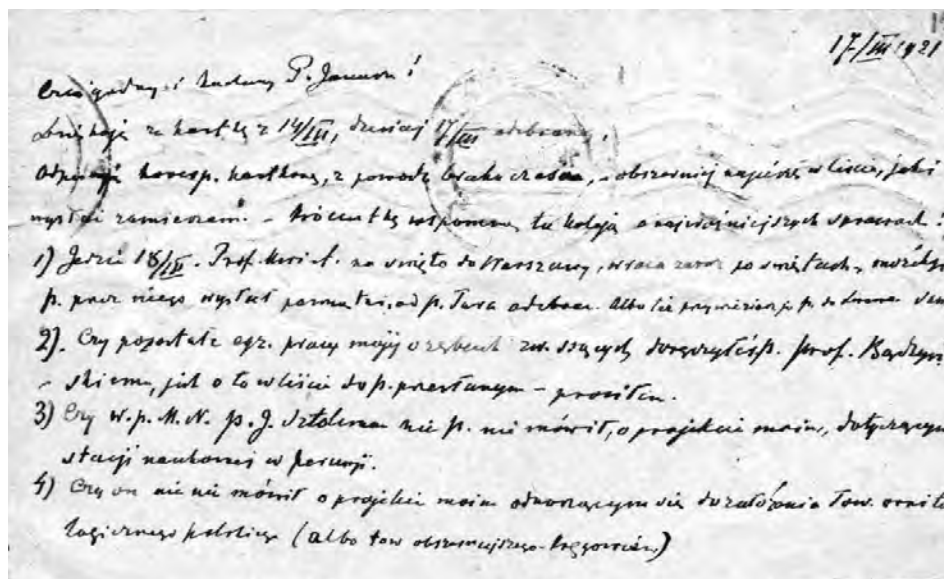 17/III 1921
Czcigodny i Kochany P. Januszu!
Dziękuję za kartkę z 14/III, dzisiaj 17/III odebraną.
Odpisuję koresp. kartkową, z powodu braku czasu, - obszerniej napiszę w liście, jaki
wysłać zamierzam. - wspomnę tu koleją o najważniejszych sprawach:
1) Jedzie 18/III. Prof. na święto do Warszawy, wraca zaraz po świętach,
p. przez niego wysłać od p. odebrane. Albo też p. do Lwowa
2). Czy pozostałe egz. pracy mojej o zębach zw. ssących doręczyłeś p. prof.
- skiemu, jak o to w liście do p. przesłanym - prosiłem.
3) Czy w. p. M. N. p. J. Sztolcman nic p. nie mówił, o projekcie moim, dotyczącym
stacji naukowej w
4) Czy on nic nie mówił o projekcie moim odnoszącym się do założenia Tow. ornito
logicznego polskiego (albo tow. obszerniejszego - kręgowców)